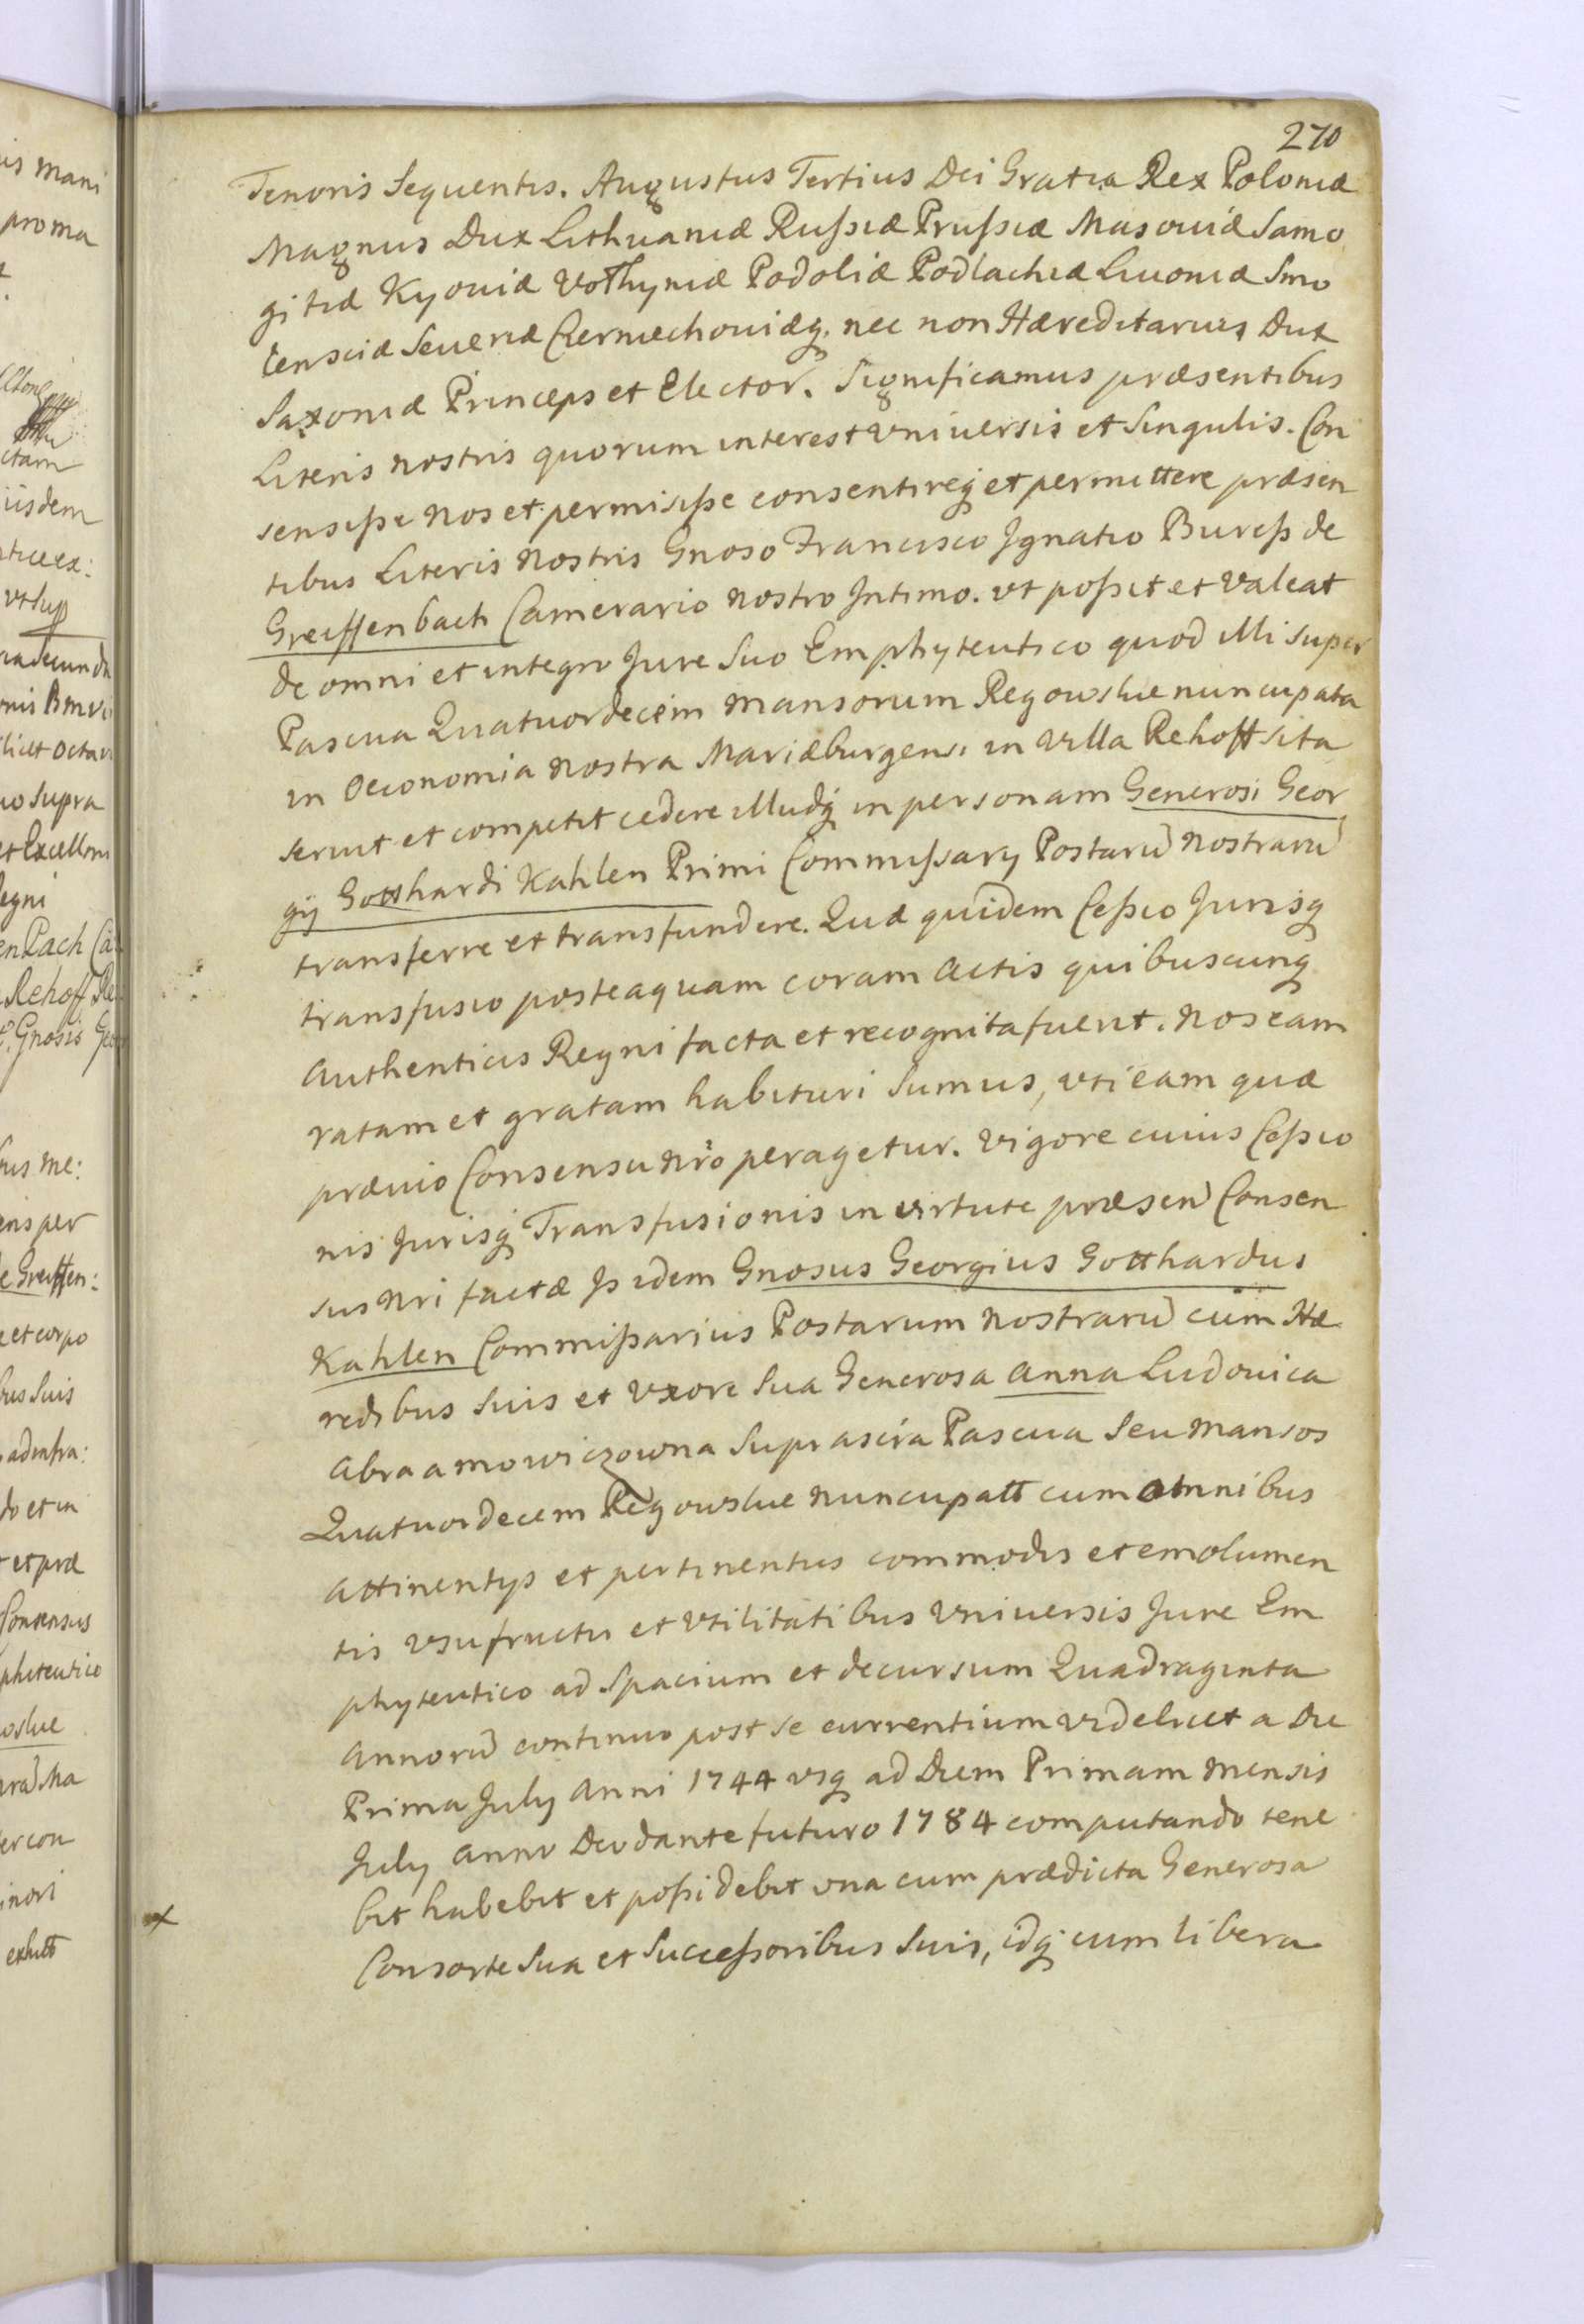 270
Tenoris Sequentis. Augustus Tertius Dei Gratia Rex Poloniæ
Magnus Dux Lithuaniæ Rußiæ Prußiæ Masouiæ Samo
gitiæ Kyouiæ Volhyniæ Podoliæ Podlachiæ Liuoniæ Smo
lensciæ Seueriæ Czerniechouiæq. nec non Hæreditarius Dux
Saxoniæ Princeps et Elector. Significamus præsentibus
Literis nostris quorum interest vniuersis et singulis. Con
sensiße nos et permisiße consentireq et permittere præsen
tibus Literis nostris Gnoso Francisco Ignatio Bureß de
Greiffenbach Camerario nostro Intimo. vt poßit et valeat
de omni et integro Jure Suo Emphyteutico quod illi super
Pascua Quatuordecem mansorum Regowskie nuncupata
in Oeconomia nostra Mariæburgensi in Villa Rehoff sita
seruit et competit cedere illudq in personam Generosi Geor
gij Gotthardi Kahlen Primi Commißary Postarũ nostrarũ
transferre et transfundere. Quæ quidem Ceßio Jurisq
transfusio posteaquam coram Actis quibuscunq
Authenticis Regni facta et recognita fuerit. Nos eam
ratam et gratam habituri Sumus, vti eam quæ
præuio Consensu nr̃o peragetur. Vigore cuius Ceßio
nis Jurisq Transfusionis in virtute præsen Consen
sus nri factæ Is idem Gnosus Georgius Gotthardus
Kahlen Commißarius Postarum nostrarũ cum Hæ
redibus Suis et Vxore Sua Generosa Anna Ludouica
Abraamowiczowna Suprascra Pascua Seu Mansos
Quatuordecem Regowskie nuncupatt cum omnibus
Attinentys et pertinentiis commodis et emolumen
tis vsufructu et vtilitatibus vniuersis Jure Em
phyteutico ad Spacium et decursum Quadraginta
Annorũ continuo post se currentium videlicet a Die
Prima July Anni 1744 vsq ad Diem Primam mensis
July Anno Deo dante futuro 1784 computando tene
bit habebit et poßidebit vna cum prædicta Generosa
Consorte Sua et Succeßoribus Suis, idq cum libera